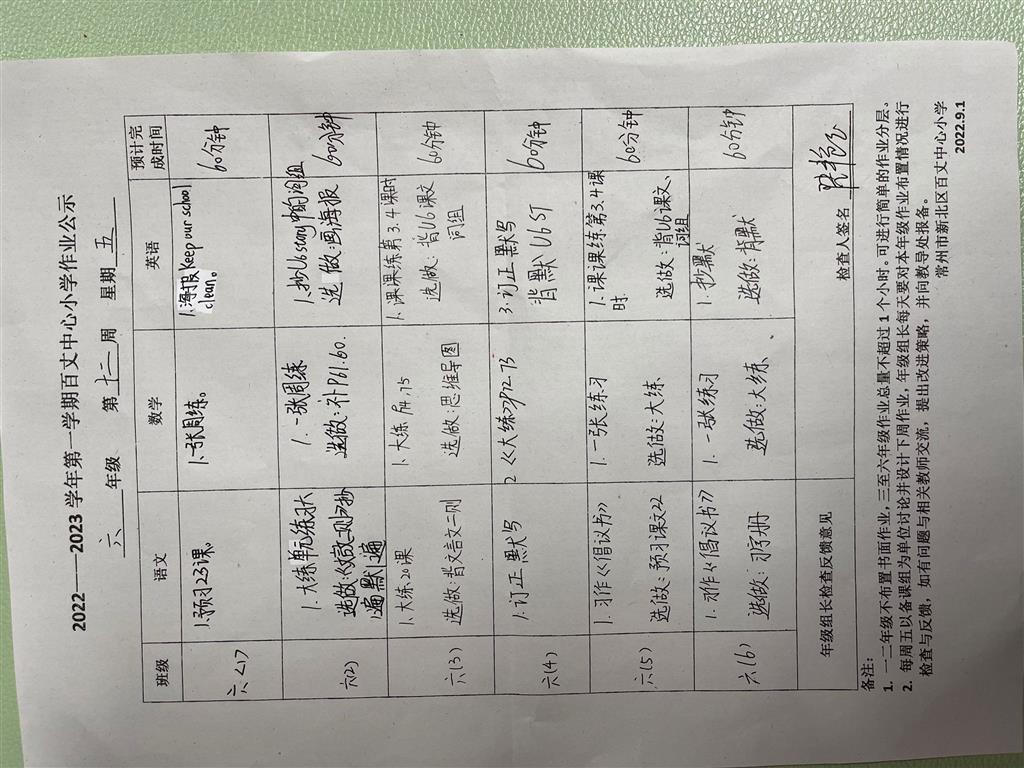 2022——2023学年第一学期百丈中心小学作业公示
六 年级 第 十二 周 星期 五
班级 语文 数学 英语 预计完成时间
六(1) 1.预习23课。 1.一张周练。 1.海报Keep our school clean. 60分钟
六(2) 1.大练单元练习 1.一张周练 1.抄U6 story中的词组 60分钟
选做:《文言文二则》抄1遍默1遍 选做:补P61.60. 选做:画海报
六(3) 1.大练20课 1.大练P74,75 1.课课练第3.4课时 60分钟
选做:背文言文二则 选做:思维导图 选做:背U6课文词组
六(4) 1.订正默写 2《大练习》P72-73 3.订正默写 60分钟
背默U6 ST
六(5) 1.习作《倡议书》 1.一张练习 1.课课练第3.4课时 60分钟
选做:预习课文22 选做:大练 选做:背U6课文、词组
六(6) 1.习作《倡议书》 1.一张练习 1.抄默 60分钟
选做:习字册 选做:大练、 选做:背默
年级组长检查反馈意见 检查人签名
备注:
1. 一二年级不布置书面作业,三至六年级作业总量不超过1个小时。可进行简单的作业分层。
2. 每周五以备课组为单位讨论并设计下周作业,年级组长每天要对本年级作业布置情况进行
检查与反馈,如有问题与相关教师交流,提出改进策略,并向教导处报备。
常州市新北区百丈中心小学
2022.9.1